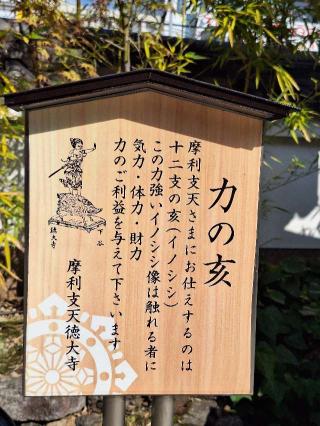 力の亥
摩利支天さまにお仕えするのは
十二支の亥(イノシシ)
この力強いイノシシ像は触れる者に
気力・体力・財力
力のご利益を与えて下さいます
摩利支天徳大寺
下谷
徳大寺